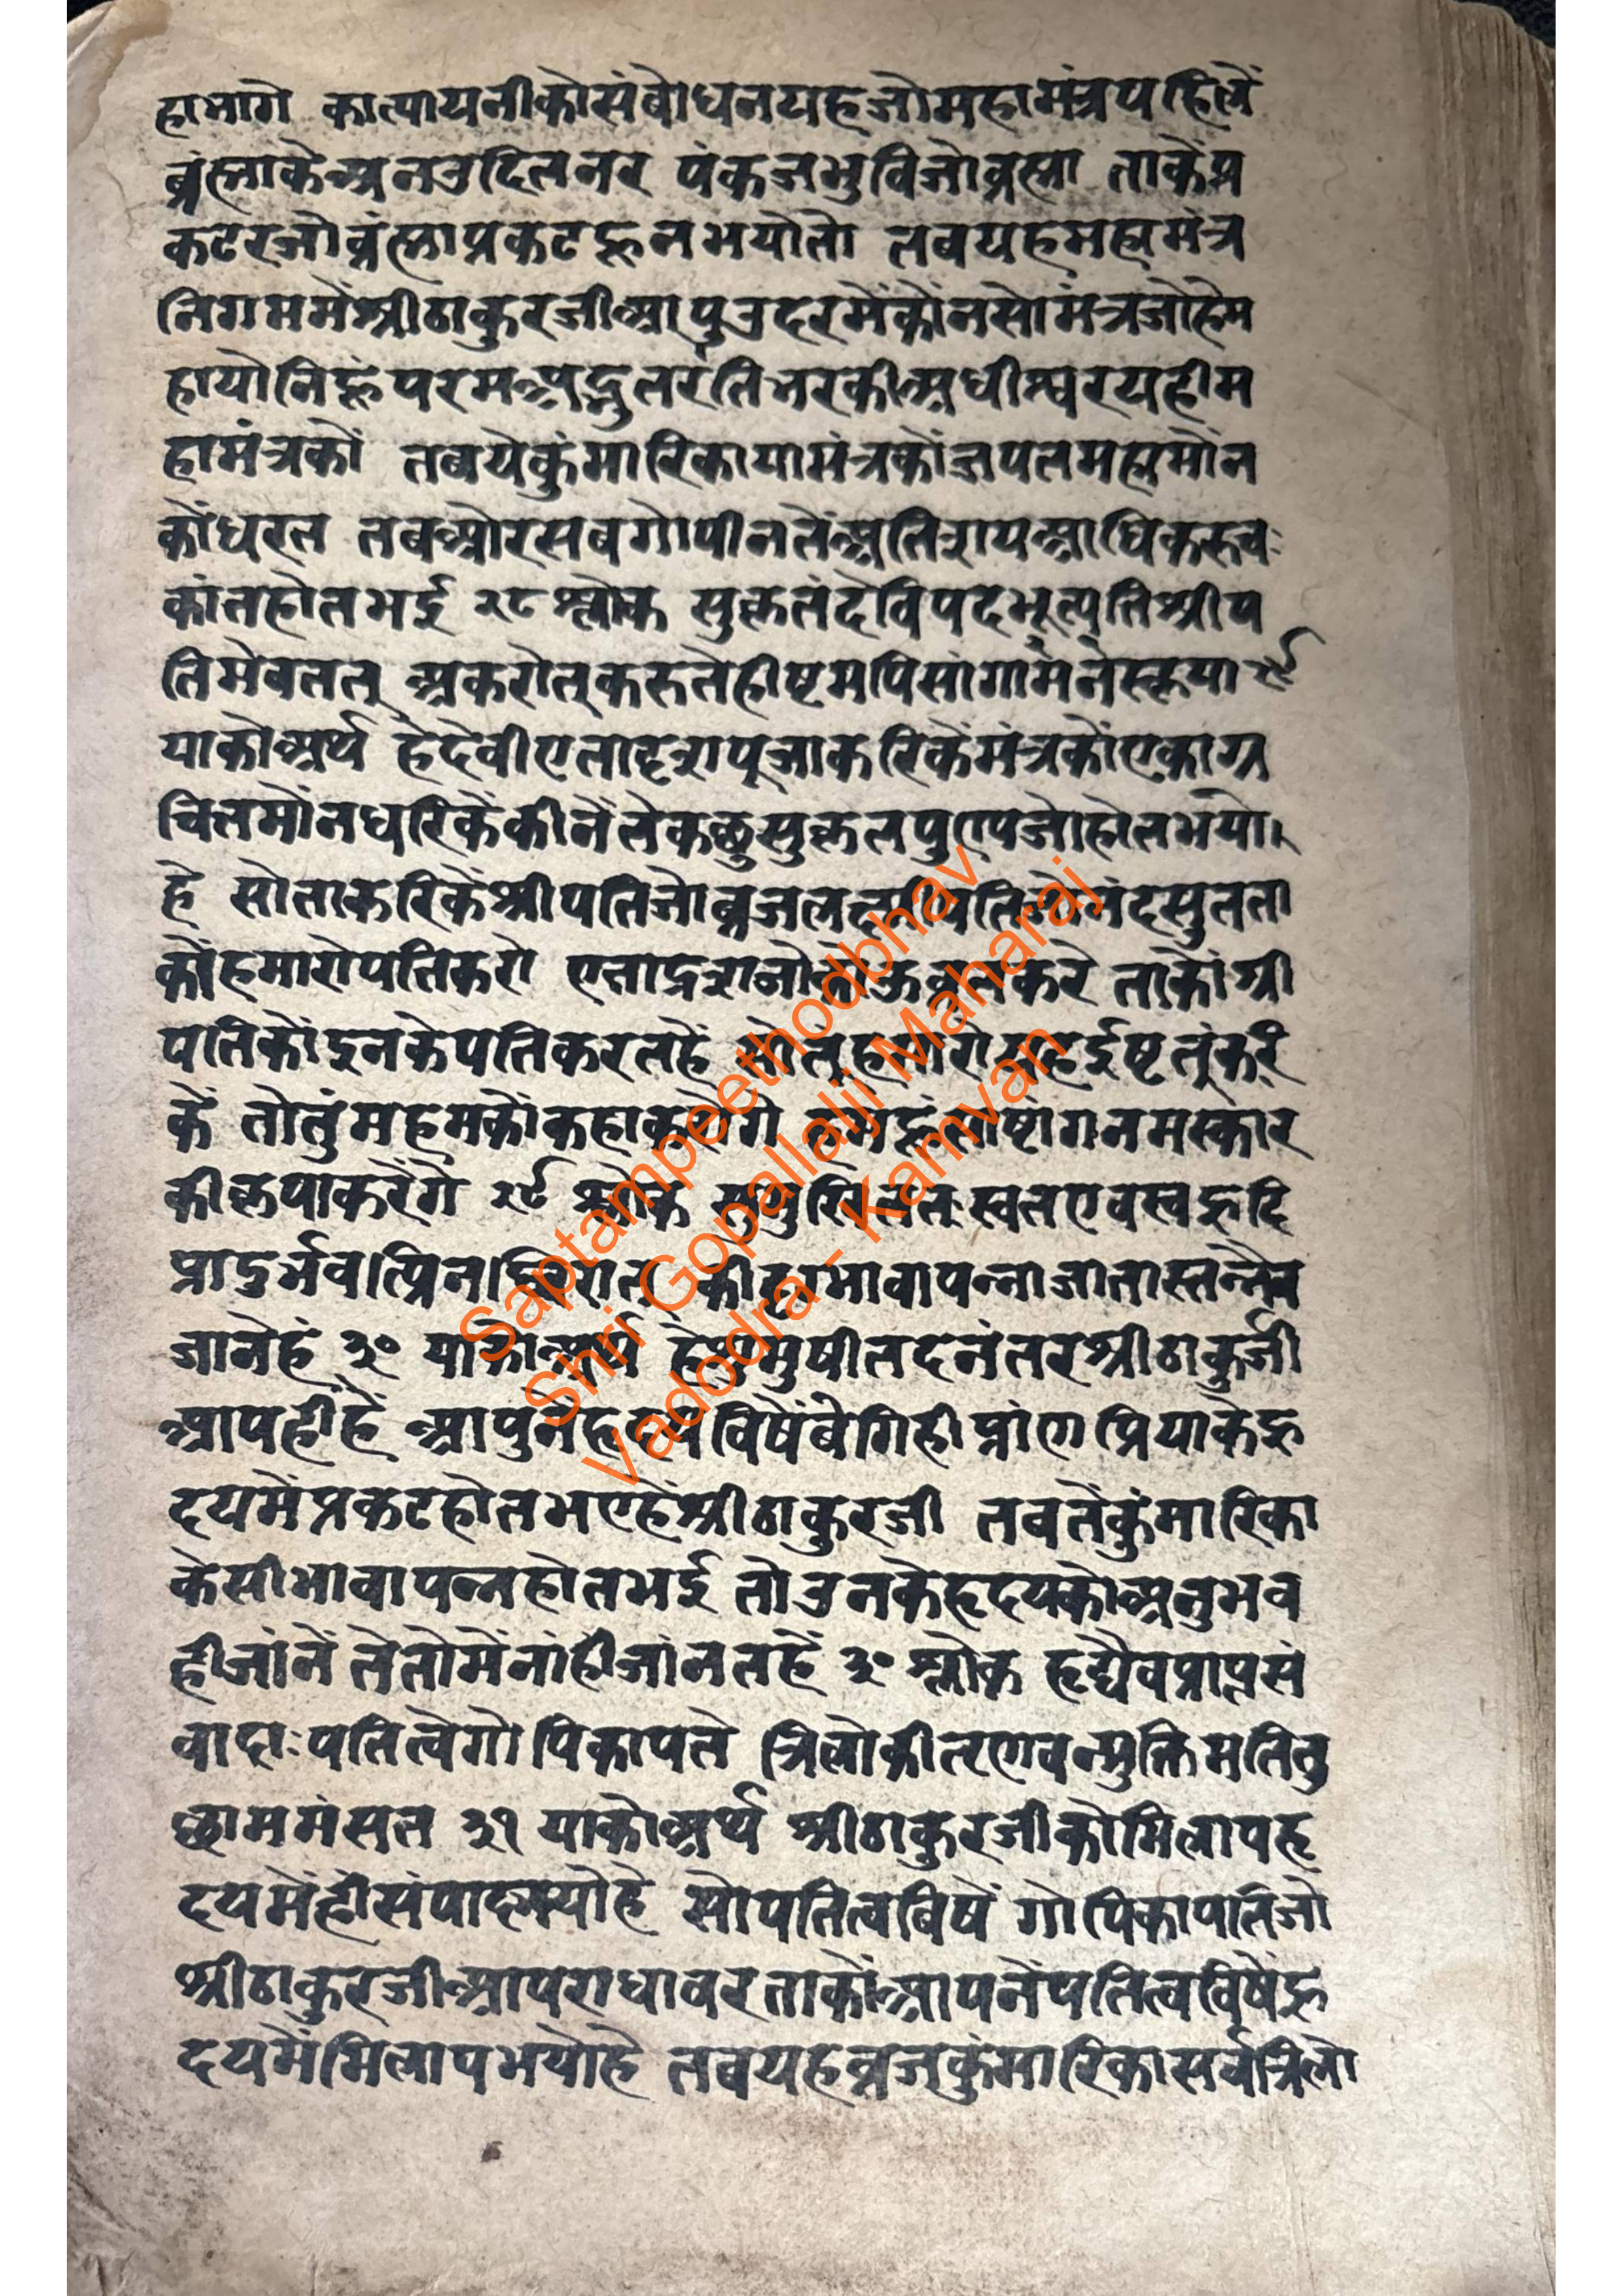 हाभागे कात्यायनीकोसंबोधनयहजोमहामंत्रपहिलें
ब्रंह्माकेअनउदितनर पंकजभुविजोब्रह्मा ताकेंप्र
कटेरजोब्रंह्माप्रकटहूनभयोतो तबयहमहामंत्र
निगममेंश्रीठाकुरजीआपुउदरमेंकोंनसोमंत्रजोहेम
हायोनिहूंपरमअद्भुतरतिभरकीअधीश्वरयहीम
हामंत्रकों तबयेकुंमारिकायामंत्रकोंजपतमहामोंन
कोंधरत तबओरसबगोपीनतेंअतिशयआधिकरुच
कांतहोतभई २८ श्लोक सुकृतंदेविपदभूत्प्रतिश्रीप
तिमेवतत् अकरोत्करुतेहीष्टमपिसांगांमनस्कृया २९
याकोअर्थ हेदेवीएतादृशपूजाकरिकेंमंत्रकोंएकाग्र
चितमोंनधरिकेंकीनेंतेकछुसुकृतपुण्यजोहोतभयो।
हे सोताकरिकेंश्रीपतिजोब्रजलक्ष्मीपतिजोनंदसुतता
कोंहमारोपतिकरो एतादृशजो करे ताकोंश्री
पतिकोंइनकेपतिकरतहें तोतुंहमारो तुंकरि
कें तोतुंमहमकोंकहाकरोगे हमहूंसाष्टांगनमस्कार
कीकृपाकरेंगे २९ श्लोक सुमुखितत्स्वतएवस्वहृदि
प्रादुर्भवत्प्रिनश्चिरात् कीदृग्भावापन्नाजातास्तन्नैव
जानेहं ३० याकोअर्थ हेसुमुषीतदनंतरश्रीठाकुर्जी
आपहीहें आपुनेंहृदयविषेंबेगिहीप्रांणप्रियाकेहृ
दयमेंप्रकटहोतभएहेंश्रीठाकुरजी तबतेंकुंमारिका
केसीभावापन्नहोतभई तोउनकेहृदयकोअनुभव
हीजांनें तेतोमेंनांहीजांनतहें ३० श्लोक हृद्येवप्राप्तसं
वादाःपतित्वेगोपिकापते त्रिलोकी मतितु
छाममंसत ३१ याकोअर्थ श्रीठाकुरजीकोमिलापहृ
दयमेंहीसंपादभयोहे सोपतित्वविषें गोपिकापतिजो
श्रीठाकुरजीआपराधावरताकोंआपनेंपतित्वविषेंहृ
दयमेंमिलापभयोहे तबयहब्रजकुंमारिकासर्वत्रिलो
Saptampeethodbhav
Shri Gopallalji Maharaj
Vadodra - Kamvan